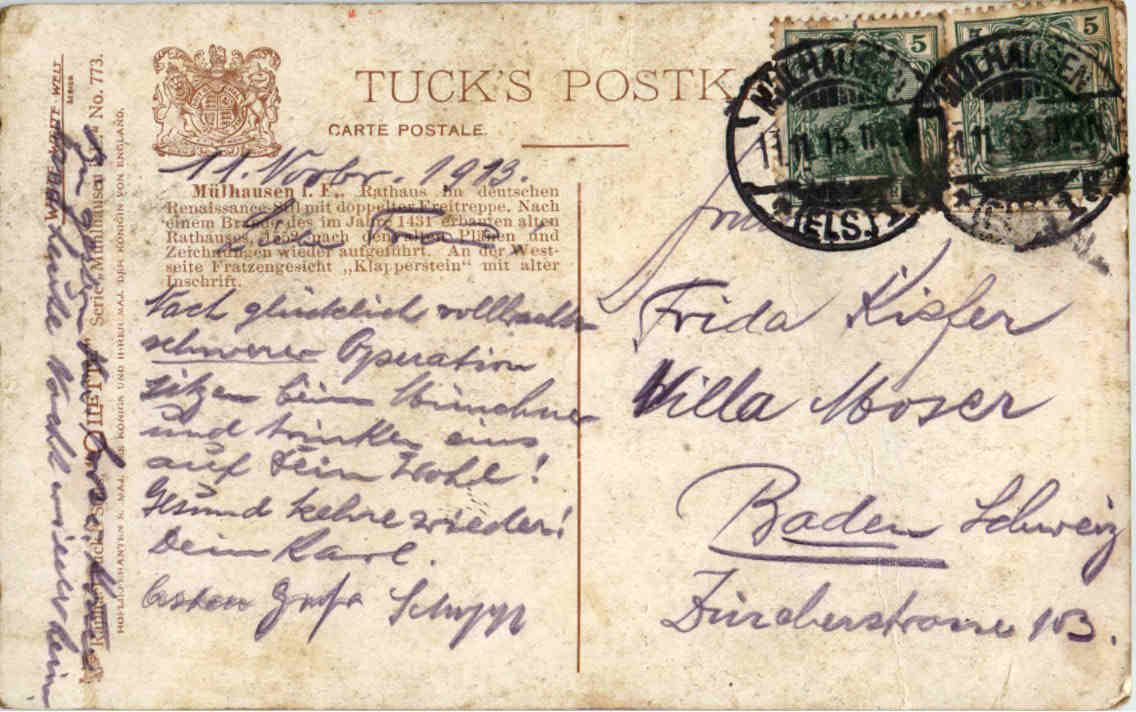 TUCK'S POSTK
CARTE POSTALE.
5
5
MÜLHAUSEN
11.11.13.
(ELS.)
MÜLHAUSEN
11.11.13.
(ELS.)
11. Novbr. 1913.
Mülhausen i. E., Rathaus im deutschen
Renaissance-Stil mit doppelter Freitreppe. Nach
einem Brande des im Jahre 1431 erbauten alten
Rathauses, nach den alten Plänen und
Zeichnungen wieder aufgeführt. An der West-
seite Fratzengesicht „Klapperstein" mit alter
Inschrift.
Nach glücklich vollbrachter
schwerer Operation
sitzen beim Münchner
und trinken eins
auf Dein Wohl!
Gesund kehre wieder!
Dein Karl.
Ersten Gruß Schupp
Frida Kiefer
Villa Moser
Baden Schweiz
Zürcherstrasse 103.
"OILETTE" Serie „Mülhausen" No. 773.
HOFLIEFERANTEN S. MAJ. DES KÖNIGS UND IHRER MAJ. DER KÖNIGIN VON ENGLAND.
WELT
SERIE
heute Nacht wieder heim